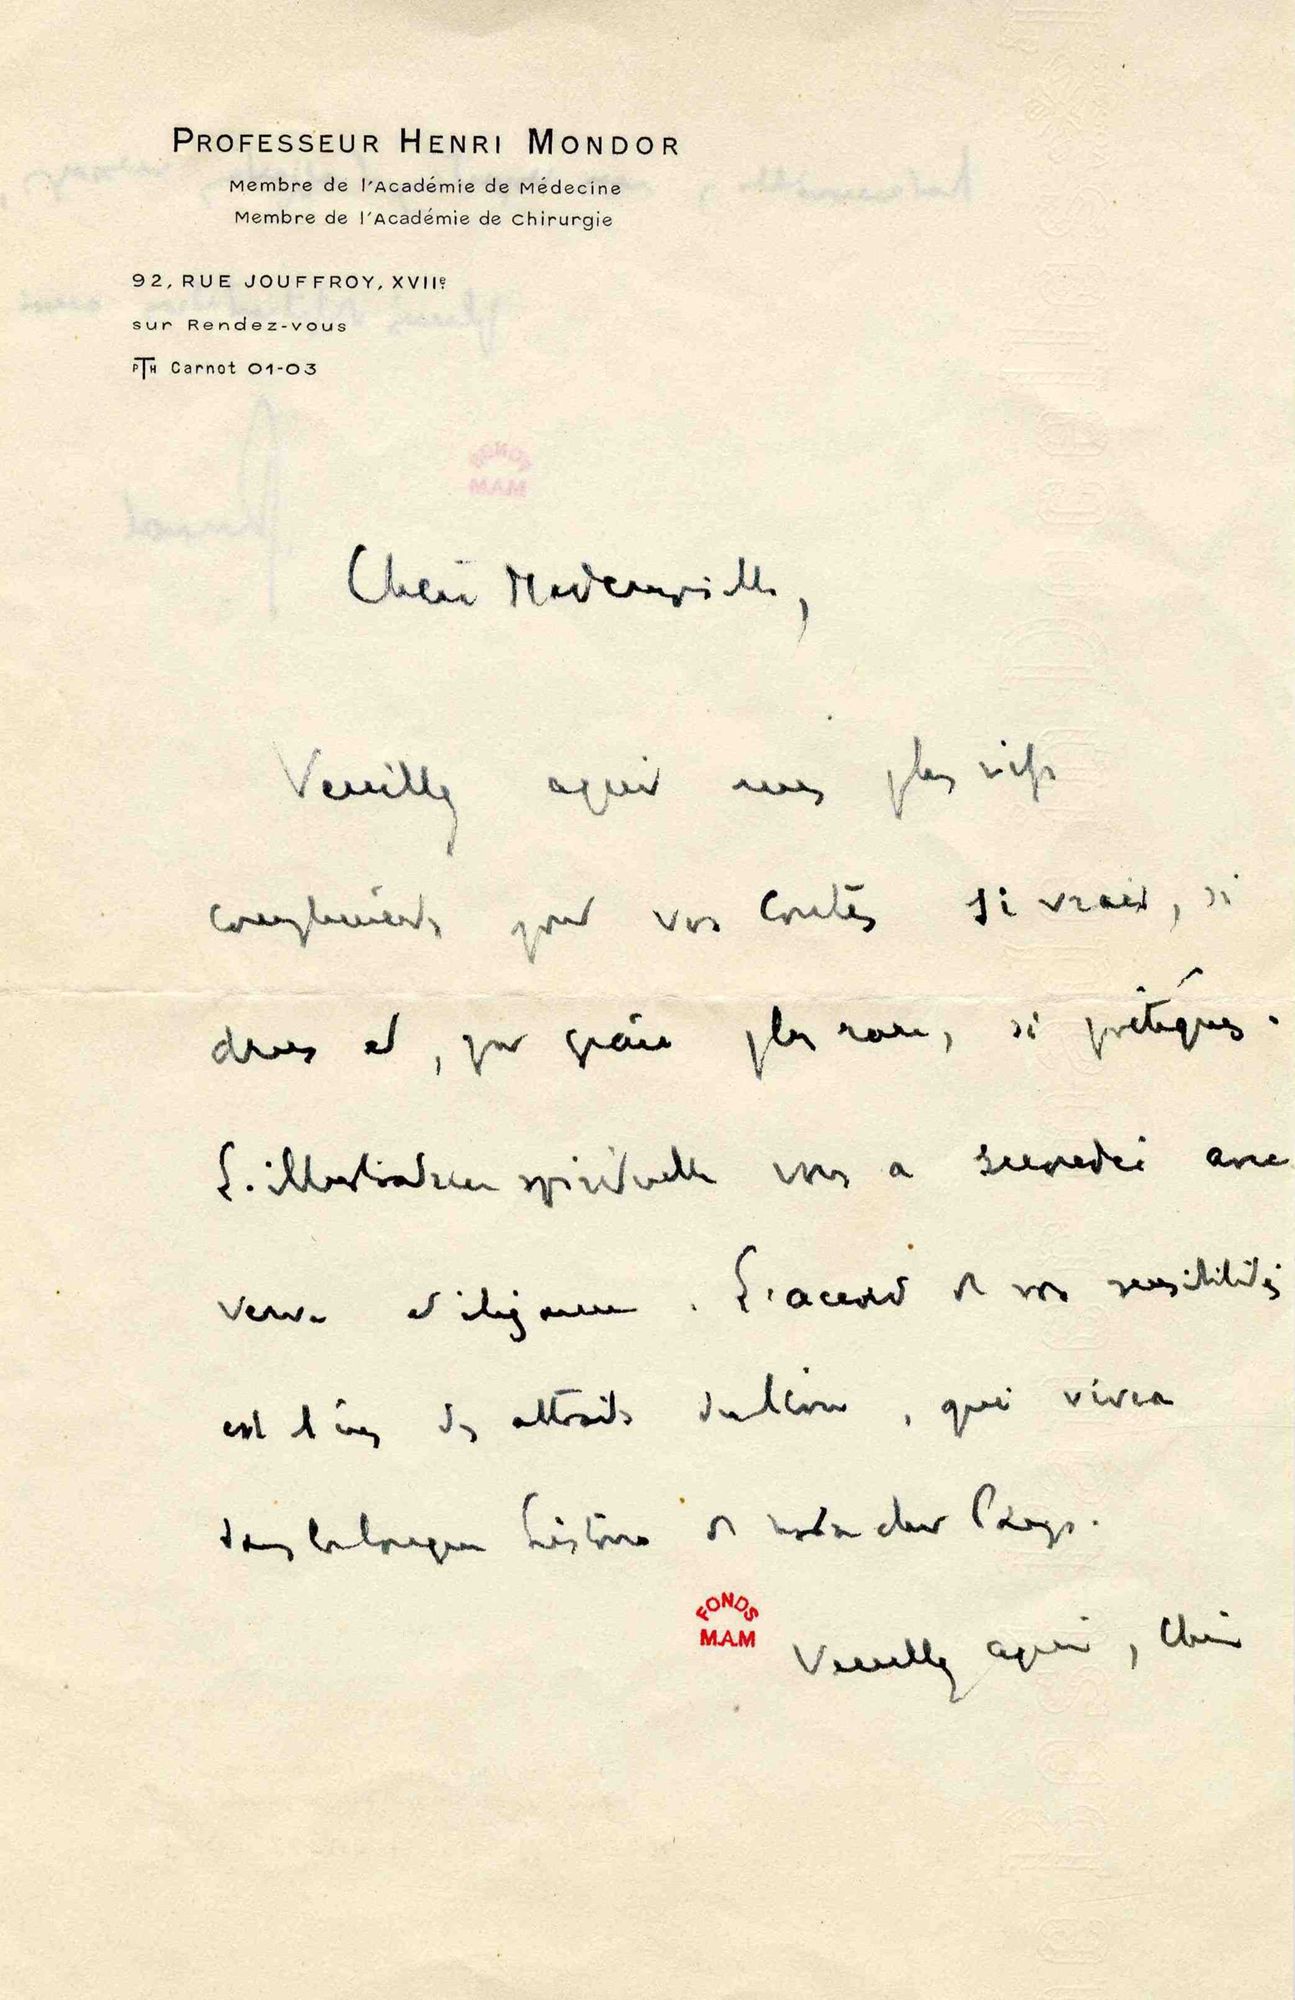 PROFESSEUR HENRI MONDOR
Membre de l'Académie de Médecine
Membre de l'Académie de Chirurgie
92, RUE JOUFFROY, XVIIe
sur Rendez-vous
PTH Carnot 01-03
Chère Mademoiselle,
Veuillez agréer mes plus vifs
compliments pour vos Contes si vrais, si
drus et, par grâce plus rare, si poétiques.
L'illustratrice spirituelle vous a secondée avec
verve et élégance. L'accord de vos sensibilités
est l'un des attraits du livre, qui vivra
dans la longue histoire de notre cher Pays.
FONDS
M.A.M
Veuillez agréer, Chère